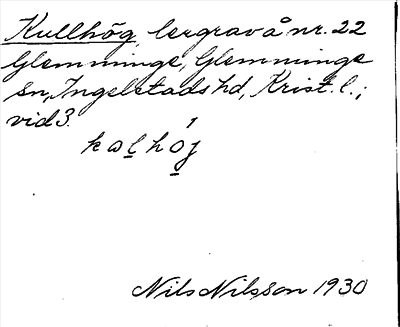 Kullhög, lergrav å nr. 22
Glemminge, Glemminge
sn, Ingelstads hd, Krist. l.;
vid 3.
kalhǫ́j
Nils Nilsson 1930